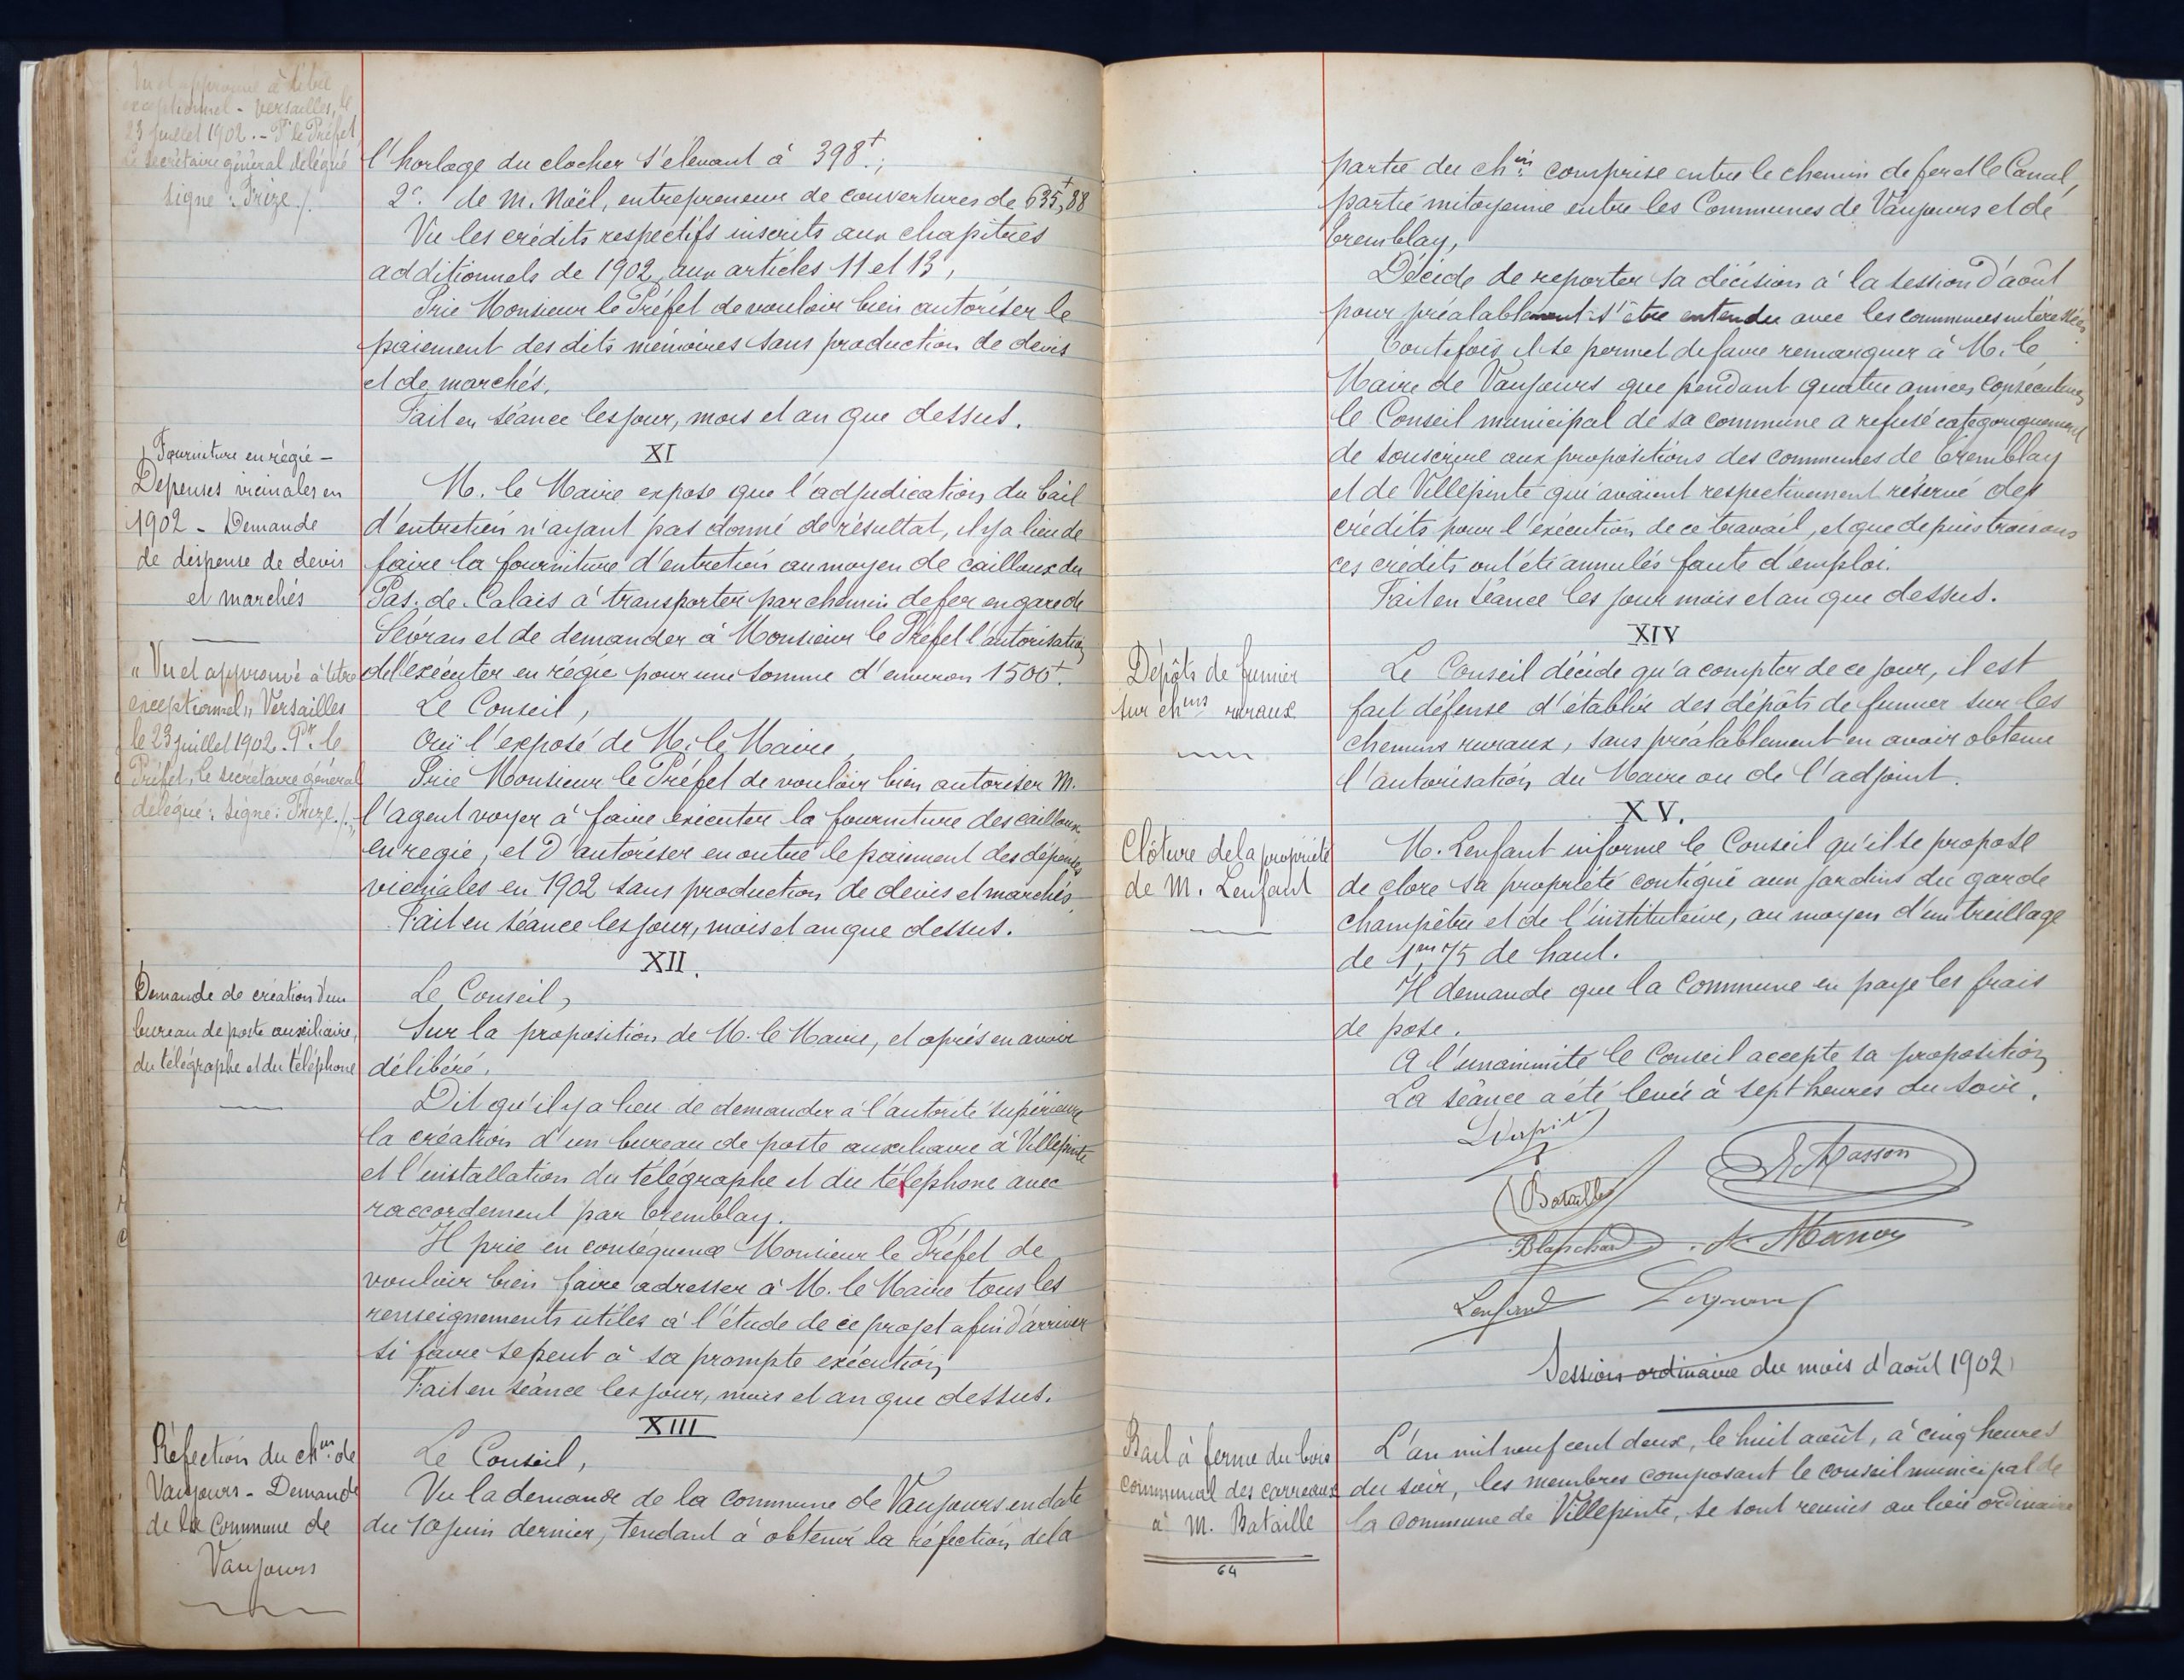 Vu et approuvé à titre
exceptionnel - Versailles, le
23 juillet 1902. - Pr le Préfet
Le Secrétaire général délégué
signé : Frize ./.
l'horloge du clocher s'élevant à 398f.;
2º. de M. Noël, entrepreneur de couvertures de 635f,88
Vu les crédits respectifs inscrits aux chapitres
additionnels de 1902, aux articles 11 et 13,
Prie Monsieur le Préfet de vouloir bien autoriser le
paiement des dits mémoires sans production de devis
et de marchés.
Fait en séance les jour, mois et an que dessus.
XI
Fourniture en régie -
Dépenses vicinales en
1902 - Demande
de dispense de devis
et marchés
M. le Maire expose que l'adjudication du bail
d'entretien n'ayant pas donné de résultat, il y a lieu de
faire la fourniture d'entretien au moyen de cailloux du
Pas-de-Calais à transporter par chemin de fer en gare de
Sevran et de demander à Monsieur le Préfet l'autorisation
de l'exécuter en régie pour une somme d'environ 1500f.
"Vu et approuvé à titre
exceptionnel" Versailles
le 23 juillet 1902. Pr. le
Préfet, le secrétaire général
délégué : signé : Frize ./.
Le Conseil,
Ouï l'exposé de M. le Maire,
Prie Monsieur le Préfet de vouloir bien autoriser M.
l'agent voyer à faire exécuter la fourniture des cailloux
en regie, et d'autoriser en outre le paiement des dépenses
vicinales en 1902 sans production de devis et marchés.
Fait en séance les jour, mois et an que dessus.
XII.
Demande de création d'un
bureau de poste auxiliaire,
du télégraphe et du téléphone
Le Conseil,
Sur la proposition de M. le Maire, et après en avoir
délibéré,
Dit qu'il y a lieu de demander à l'autorité supérieure
la création d'un bureau de poste auxiliaire à Villepinte
et l'installation du télégraphe et du téléphone avec
raccordement par Tremblay.
Il prie en conséquence Monsieur le Préfet de
vouloir bien faire adresser à M. le Maire tous les
renseignements utiles à l'étude de ce projet afin d'arriver
si faire se peut à sa prompte exécution,
Fait en séance les jour, mois et an que dessus.
XIII
Réfection du chin de
Vaujours - Demande
de la Commune de
Vaujours
Le Conseil,
Vu la demande de la commune de Vaujours en date
du 10 juin dernier, tendant à obtenir la réfection de la
partie du chin: comprise entre le chemin de fer et le Canal,
partie mitoyenne entre les Communes de Vaujours et de
Tremblay,
Décide de reporter sa décision à la session d'août
pour préalablement s'être entendu avec les communes intéressées,
Toutefois, il se permet de faire remarquer à M. le
Maire de Vaujours que pendant quatre années consécutives
le Conseil municipal de sa commune a refusé catégoriquement
de souscrire aux propositions des communes de Tremblay
et de Villepinte qui avaient respectivement réservé des
crédits pour l'exécution de ce travail, et que depuis trois ans
ces crédits ont été annulés faute d'emploi.
Fait en séance les jour mois et an que dessus.
XIV
Dépôts de fumier
sur chins ruraux
Le Conseil décide qu'a compter de ce jour, il est
fait défense d'établir des dépôts de fumier sur les
chemins ruraux, sans préalablement en avoir obtenu
l'autorisation du Maire ou de l'adjoint.
XV.
Clôture de la propriété
de M. Lenfant
M. Lenfant informe le Conseil qu'il se propose
de clore sa propriété contiguë aux jardins du garde
champêtre et de l'instituteur, au moyen d'un treillage
de 1m,75 de haut.
Il demande que la Commune en paye les frais
de pose.
A l'unanimité le Conseil accepte sa proposition
La séance a été levée à sept heures du soir.
Masson
Bataille
Blanchard
Lenfant
Session ordinaire du mois d'août 1902
Bail à ferme du bois
communal des carreaux
à M. Bataille
64
L'an mil neuf cent deux, le huit août, à cinq heures
du soir, les membres composant le conseil municipal de
la commune de Villepinte, se sont reunis au lieu ordinaire